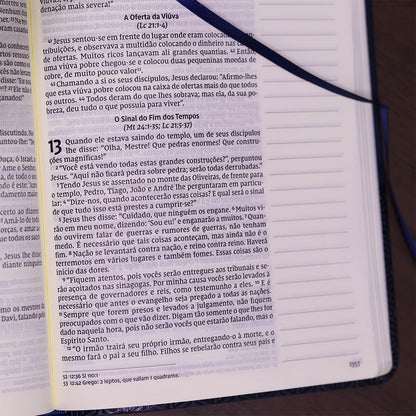 denação mais severa!"
A Oferta da Viúva
(Lc 21:1-4)
41 Jesus sentou-se em frente do lugar onde eram colocadas
tribuições, e observava a multidão colocando o dinheiro nas caixas
de ofertas. Muitos ricos lançavam ali grandes quantias. 42 Então,
uma viúva pobre chegou-se e colocou duas pequeninas moedas de
cobre, de muito pouco valor
43 Chamando a si os seus discípulos, Jesus declarou: "Afirmo-lhes
que esta viúva pobre colocou na caixa de ofertas mais do que todos
os outros. 44 Todos deram do que lhes sobrava; mas ela, da sua po-
breza, deu tudo o que possuía para viver".
O Sinal do Fim dos Tempos
(Mt 24:1-35; Lc 21:5-37)
13 Quando ele estava saindo do templo, um de seus discípulos
lhe disse: "Olha, Mestre! Que pedras enormes! Que constru-
ções magníficas!"
2 "Você está vendo todas estas grandes construções?", perguntou
Jesus. "Aqui não ficará pedra sobre pedra; serão todas derrubadas."
3 Tendo Jesus se assentado no monte das Oliveiras, de frente para
o templo, Pedro, Tiago, João e André lhe perguntaram em particu-
lar: 4 "Dize-nos, quando acontecerão essas coisas? E qual será o sinal
de que tudo isso está prestes a cumprir-se?"
5 Jesus lhes disse: "Cuidado, que ninguém os engane. 6 Muitos vi-
rão em meu nome, dizendo: 'Sou eu!' e enganarão a muitos. 7 Quan-
do ouvirem falar de guerras e rumores de guerras, não tenham
medo. É necessário que tais coisas aconteçam, mas ainda não é o
fim. 8 Nação se levantará contra nação, e reino contra reino. Haverá
terremotos em vários lugares e também fomes. Essas coisas são o
início das dores.
9 "Fiquem atentos, pois vocês serão entregues aos tribunais e se-
rão açoitados nas sinagogas. Por minha causa vocês serão levados à
presença de governadores e reis, como testemunho a eles. 10 E é
necessário que antes o evangelho seja pregado a todas as nações.
11 Sempre que forem presos e levados a julgamento, não fiquem
preocupados com o que vão dizer. Digam tão somente o que lhes for
dado naquela hora, pois não serão vocês que estarão falando, mas o
Espírito Santo.
12 "O irmão trairá seu próprio irmão, entregando-o à morte, e o
mesmo fará o pai a seu filho. Filhos se rebelarão contra seus pais e
12:36 Sl 110:1
12:42 Grego: 2 leptos, que valiam 1 quadrante.
1357